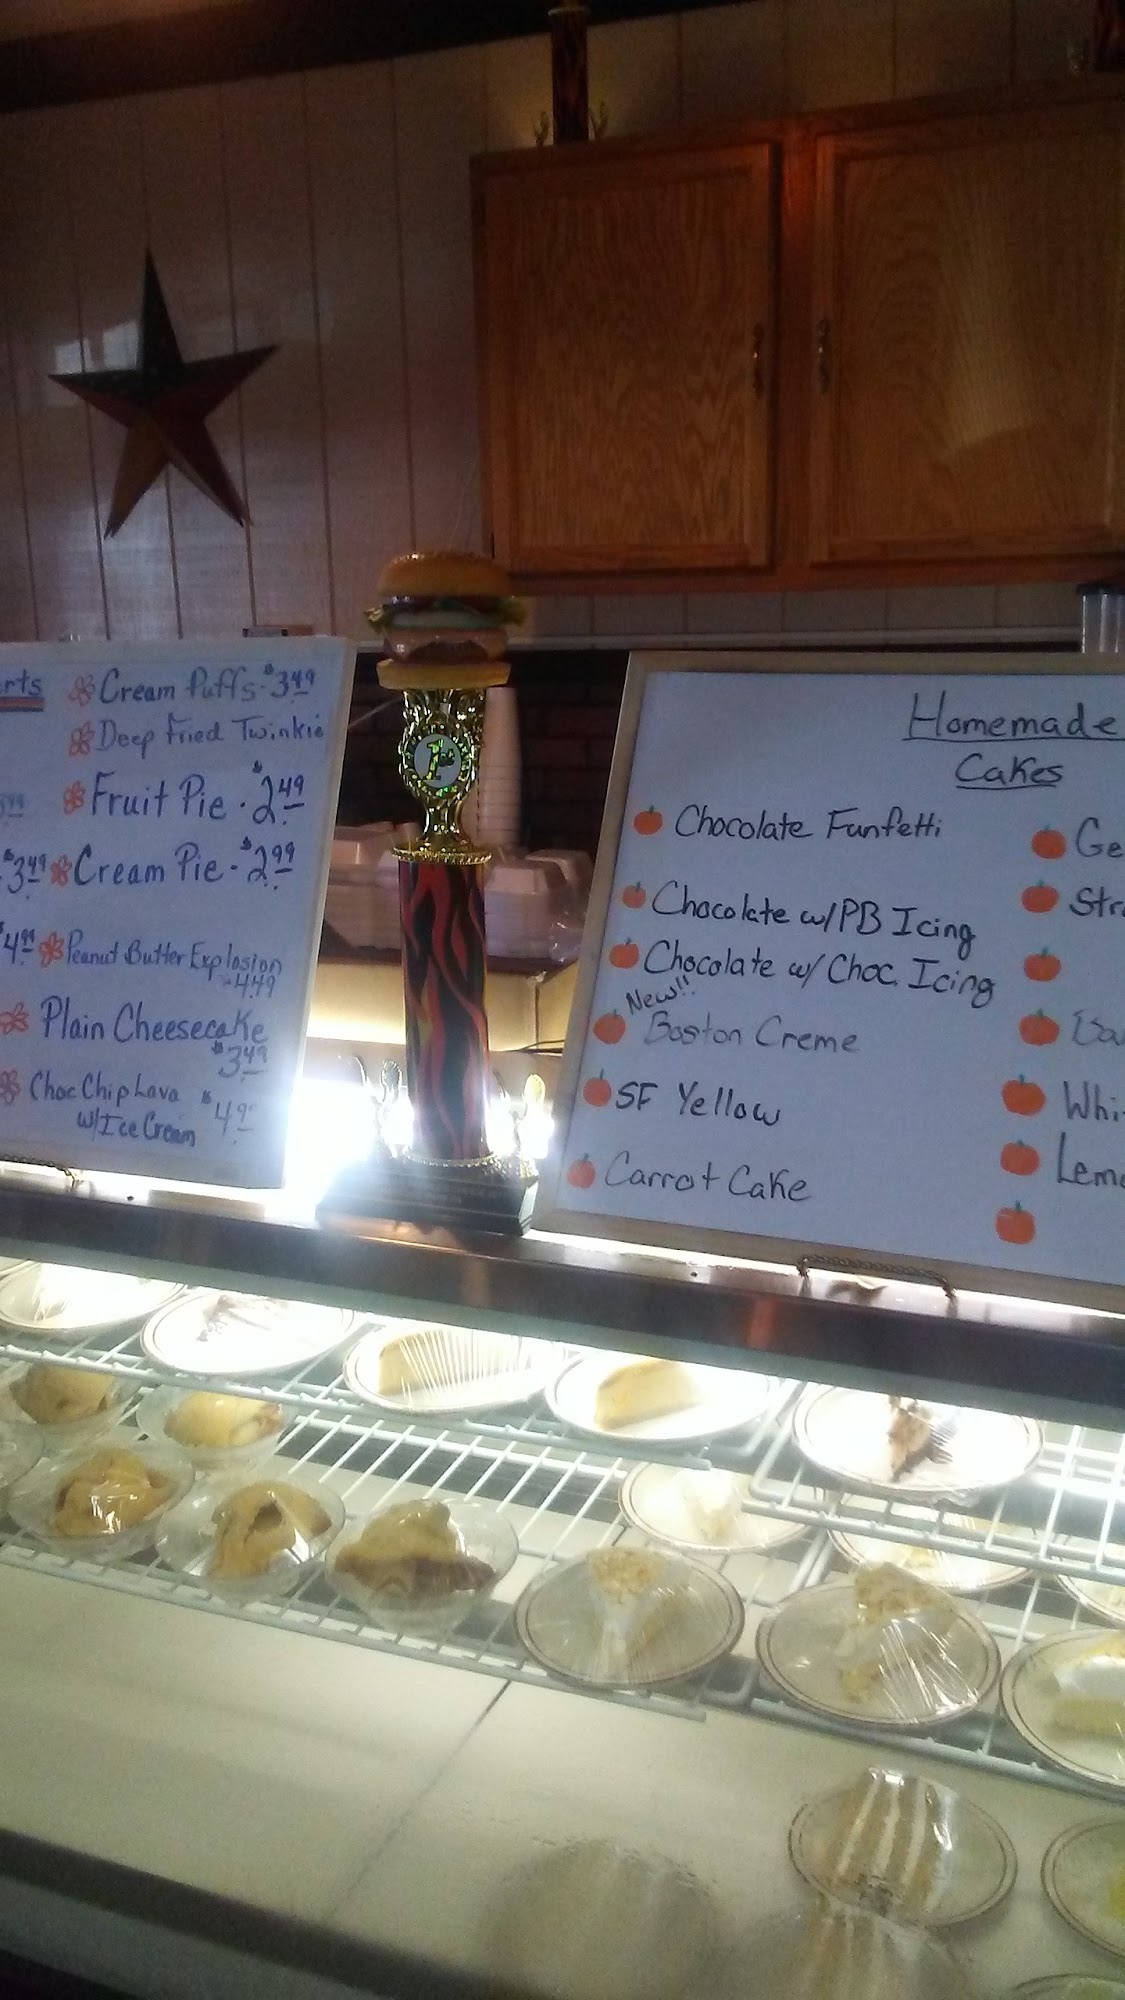 Cream Puffs - $3.49
Deep Fried Twinkie
Fruit Pie - $2.49
$3.49
Cream Pie - $2.99
Peanut Butter Explosion
$4.49
Plain Cheesecake
$3.49
Choc Chip Lava
w/Ice Cream
1st
Homemade
Cakes
Chocolate Funfetti
Chocolate w/PB Icing
Chocolate w/ Choc. Icing
New!!
Boston Creme
SF Yellow
Carrot Cake